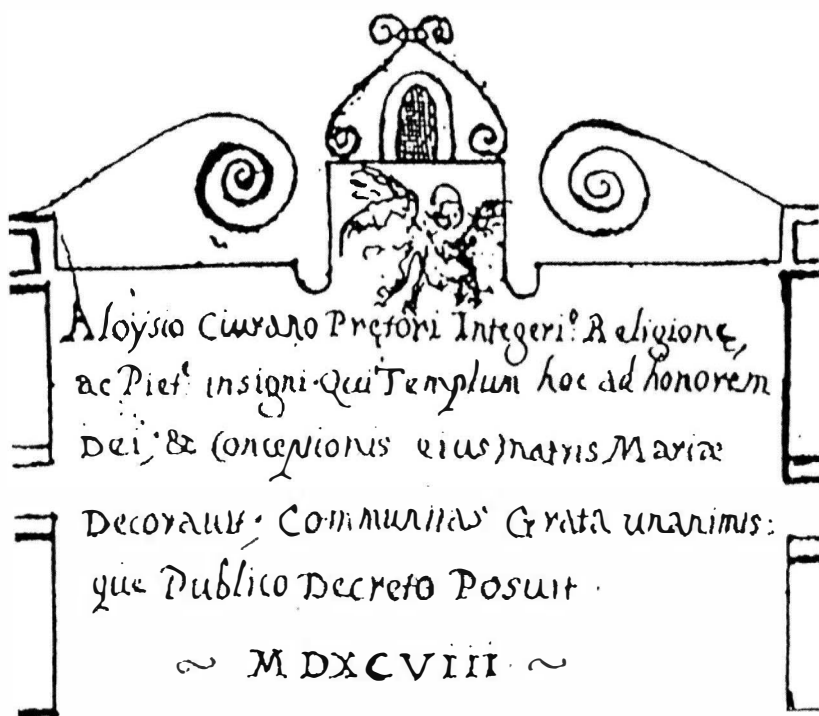 Aloysio Ciurano Prętori Integeri.º Religione,
ac Piet.ᵉ insigni. Qui Templum hoc ad honorem
Dei, & Conceptionis eius Matris Mariæ
Decorauit. Communitas Grata unanimis:
que Publico Decreto Posuit.
~ MDXCVIII ~